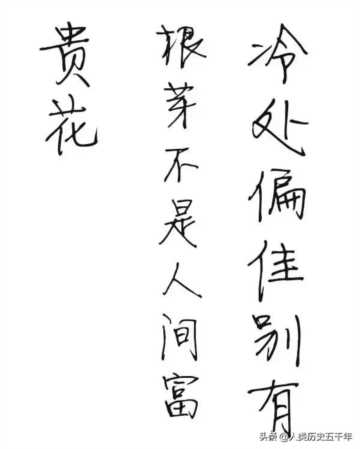 冷处偏佳别有
根芽不是人间富
贵花
头条 @人类历史五千年